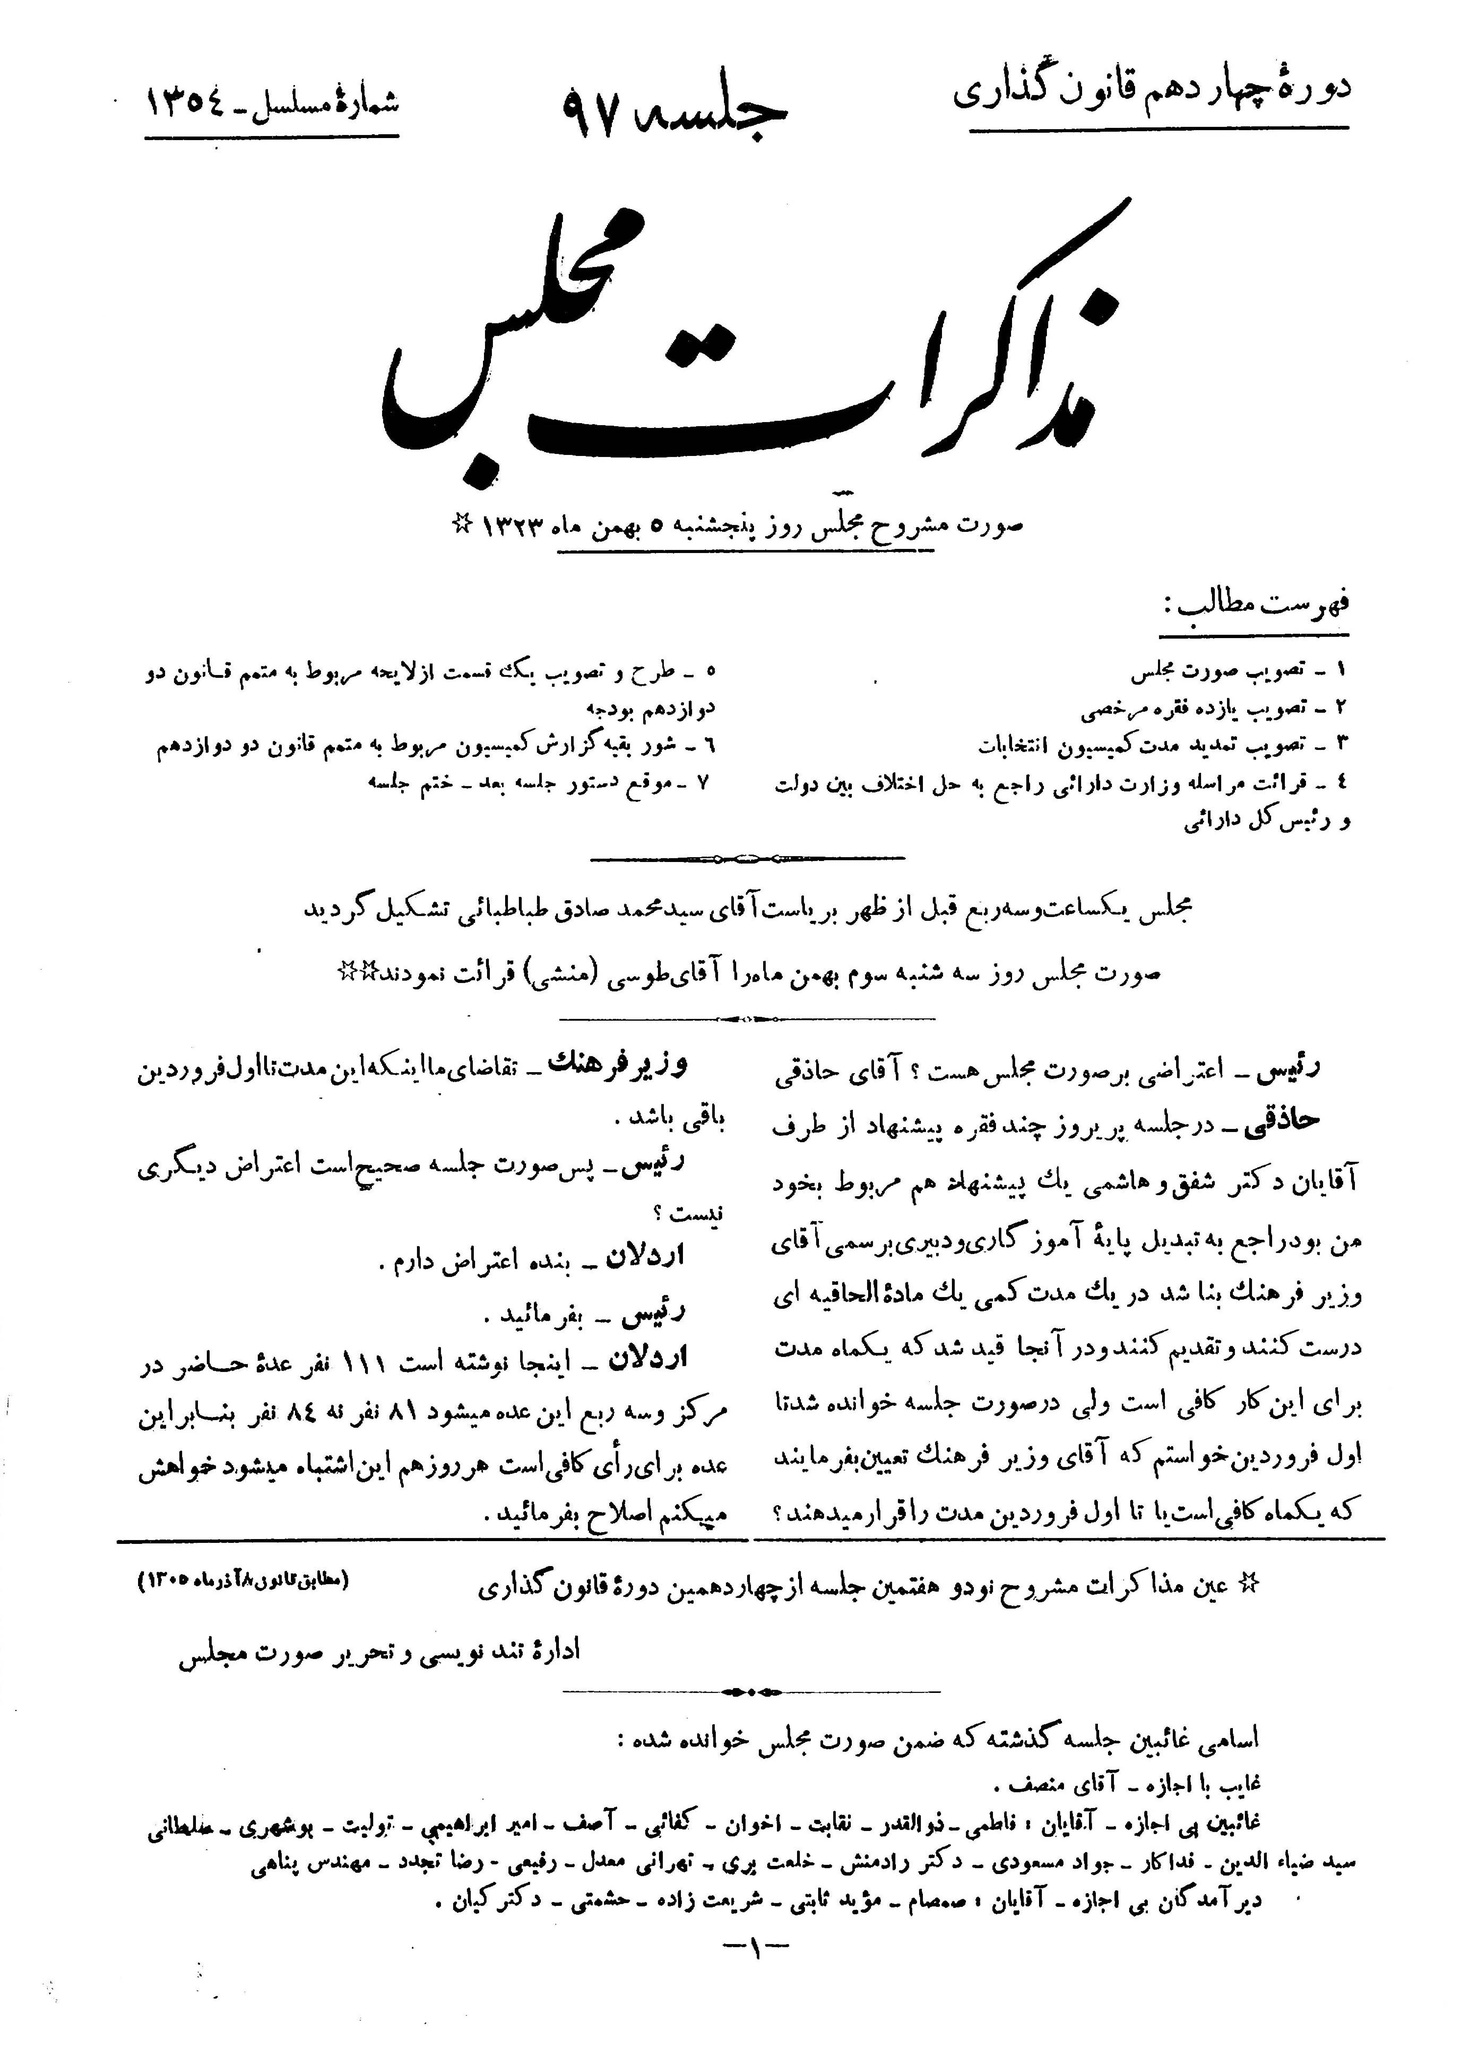 دورهٔ چهاردهم قانون گذاری
جلسه ۹۷
شمارهٔ مسلسل ـ ۱۳٥٤
مذاکرات مجلس
صورت مشروح مجلس روز پنجشنبه ٥ بهمن ماه ۱۳۲۳ ☆
فهرست مطالب :
۱ ـ تصویب صورت مجلس
۲ ـ تصویب یازده فقره مرخصی
۳ ـ تصویب تمدید مدت کمیسیون انتخابات
٤ ـ قرائت مراسله وزارت دارائی راجع به حل اختلاف بین دولت
و رئیس کل دارائی
٥ ـ طرح و تصویب یك قسمت از لایحه مربوط به متمم قانون دو
دوازدهم بودجه
٦ ـ شور بقیه گزارش کمیسیون مربوط به متمم قانون دو دوازدهم
۷ ـ موقع دستور جلسه بعد ـ ختم جلسه
مجلس یکساعت و سه ربع قبل از ظهر بریاست آقای سید محمد صادق طباطبائی تشکیل گردید
صورت مجلس روز سه شنبه سوم بهمن ماه را آقای طوسی (منشی) قرائت نمودند☆☆
رئیس ـ اعتراضی بر صورت مجلس هست ؟ آقای حاذقی
حاذقی ـ در جلسه پریروز چند فقره پیشنهاد از طرف
آقایان دکتر شفق و هاشمی یك پیشنهاد هم مربوط بخود
من بود راجع به تبدیل پایهٔ آموزگاری و دبیری برسمی آقای
وزیر فرهنك بنا شد در یك مدت کمی یك مادهٔ الحاقیه ای
درست کنند و تقدیم کنند و در آنجا قید شد که یکماه مدت
برای این کار کافی است ولی در صورت جلسه خوانده شد تا
اول فروردین خواستم که آقای وزیر فرهنك تعیین بفرمایند
که یکماه کافی است یا تا اول فروردین مدت را قرار میدهند ؟
وزیر فرهنك ـ تقاضای ما اینکه این مدت تا اول فروردین
باقی باشد .
رئیس ـ پس صورت جلسه صحیح است اعتراض دیگری
نیست ؟
اردلان ـ بنده اعتراض دارم .
رئیس ـ بفرمائید .
اردلان ـ اینجا نوشته است ۱۱۱ نفر عدهٔ حاضر در
مرکز و سه ربع این عده میشود ۸۱ نفر نه ۸٤ نفر بنابراین
عده برای رأی کافی است هر روز هم این اشتباه میشود خواهش
میکنم اصلاح بفرمائید .
☆ عین مذاکرات مشروح نود و هفتمین جلسه از چهاردهمین دورهٔ قانون گذاری
(مطابق قانون ۸ آذر ماه ۱۳۰٥)
ادارهٔ تند نویسی و تحریر صورت مجلس
اسامی غائبین جلسه گذشته که ضمن صورت مجلس خوانده شده :
غایب با اجازه ـ آقای منصف .
غائبین بی اجازه ـ آقایان : فاطمی ـ ذوالقدر ـ نقابت ـ اخوان ـ کفائی ـ آصف ـ امیر ابراهیمی ـ تولیت ـ بوشهری ـ سلطانی
سید ضیاء الدین ـ فداکار ـ جواد مسعودی ـ دکتر رادمنش ـ خلعت بری ـ تهرانی معدل ـ رفیعی ـ رضا تجدد ـ مهندس پناهی
دیر آمدگان بی اجازه ـ آقایان : صمصام ـ مؤید ثابتی ـ شریعت زاده ـ حشمتی ـ دکتر کیان .
ـ۱ـ